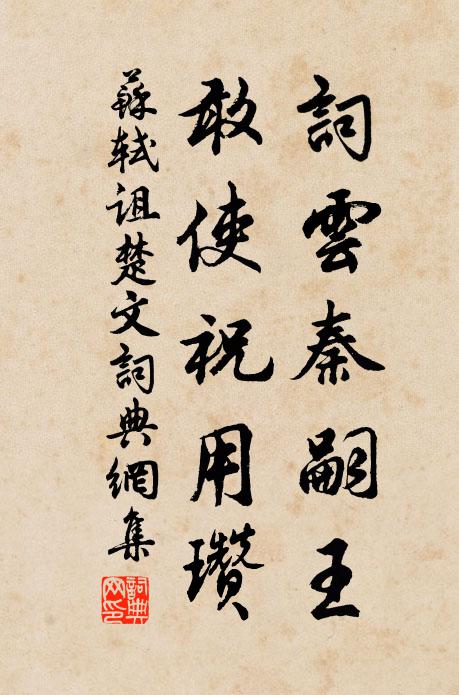 詞雲秦嗣王
敢使祝用瓚
蘇軾詛楚文詞典網集
詞典網印